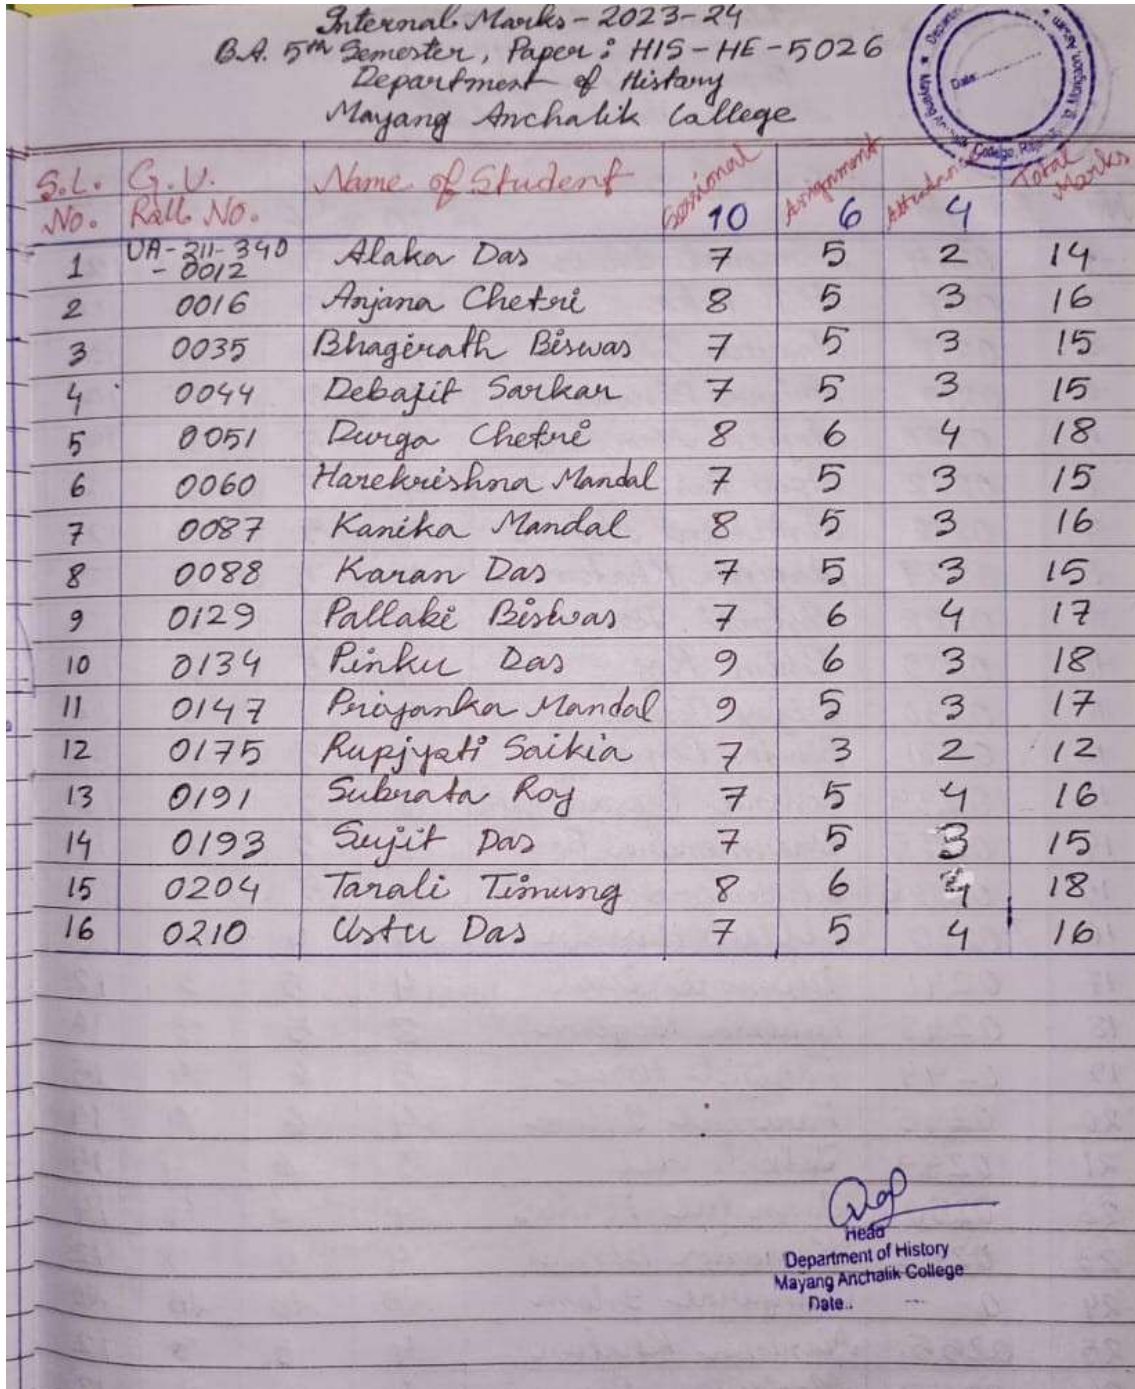 Internal Marks - 2023-24
B.A. 5th Semester, Paper: HIS-HE-5026
Department of History
Mayang Anchalik College
Date
S.L. No. G.U. Roll No. Name of Student Sessional 10 Assignment 6 Attendance 4 Total Marks
1 UA-211-340-0012 Alaka Das 7 5 2 14
2 0016 Anjana Chetri 8 5 3 16
3 0035 Bhagirath Biswas 7 5 3 15
4 0044 Debajit Sarkar 7 5 3 15
5 0051 Durga Chetri 8 6 4 18
6 0060 Harekrishna Mandal 7 5 3 15
7 0087 Kanika Mandal 8 5 3 16
8 0088 Karan Das 7 5 3 15
9 0129 Pallabi Biswas 7 6 4 17
10 0134 Pinku Das 9 6 3 18
11 0147 Priyanka Mandal 9 5 3 17
12 0175 Rupjyoti Saikia 7 3 2 12
13 0191 Subrata Roy 7 5 4 16
14 0193 Sujit Das 7 5 3 15
15 0204 Tarali Timung 8 6 4 18
16 0210 Ustu Das 7 5 4 16
Head
Department of History
Mayang Anchalik College
Date..